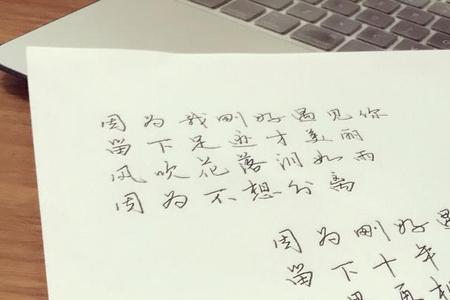 因为我刚好遇见你
留下足迹才美丽
风吹花落泪如雨
因为不想分离
因为刚好遇
留下十年
果再相